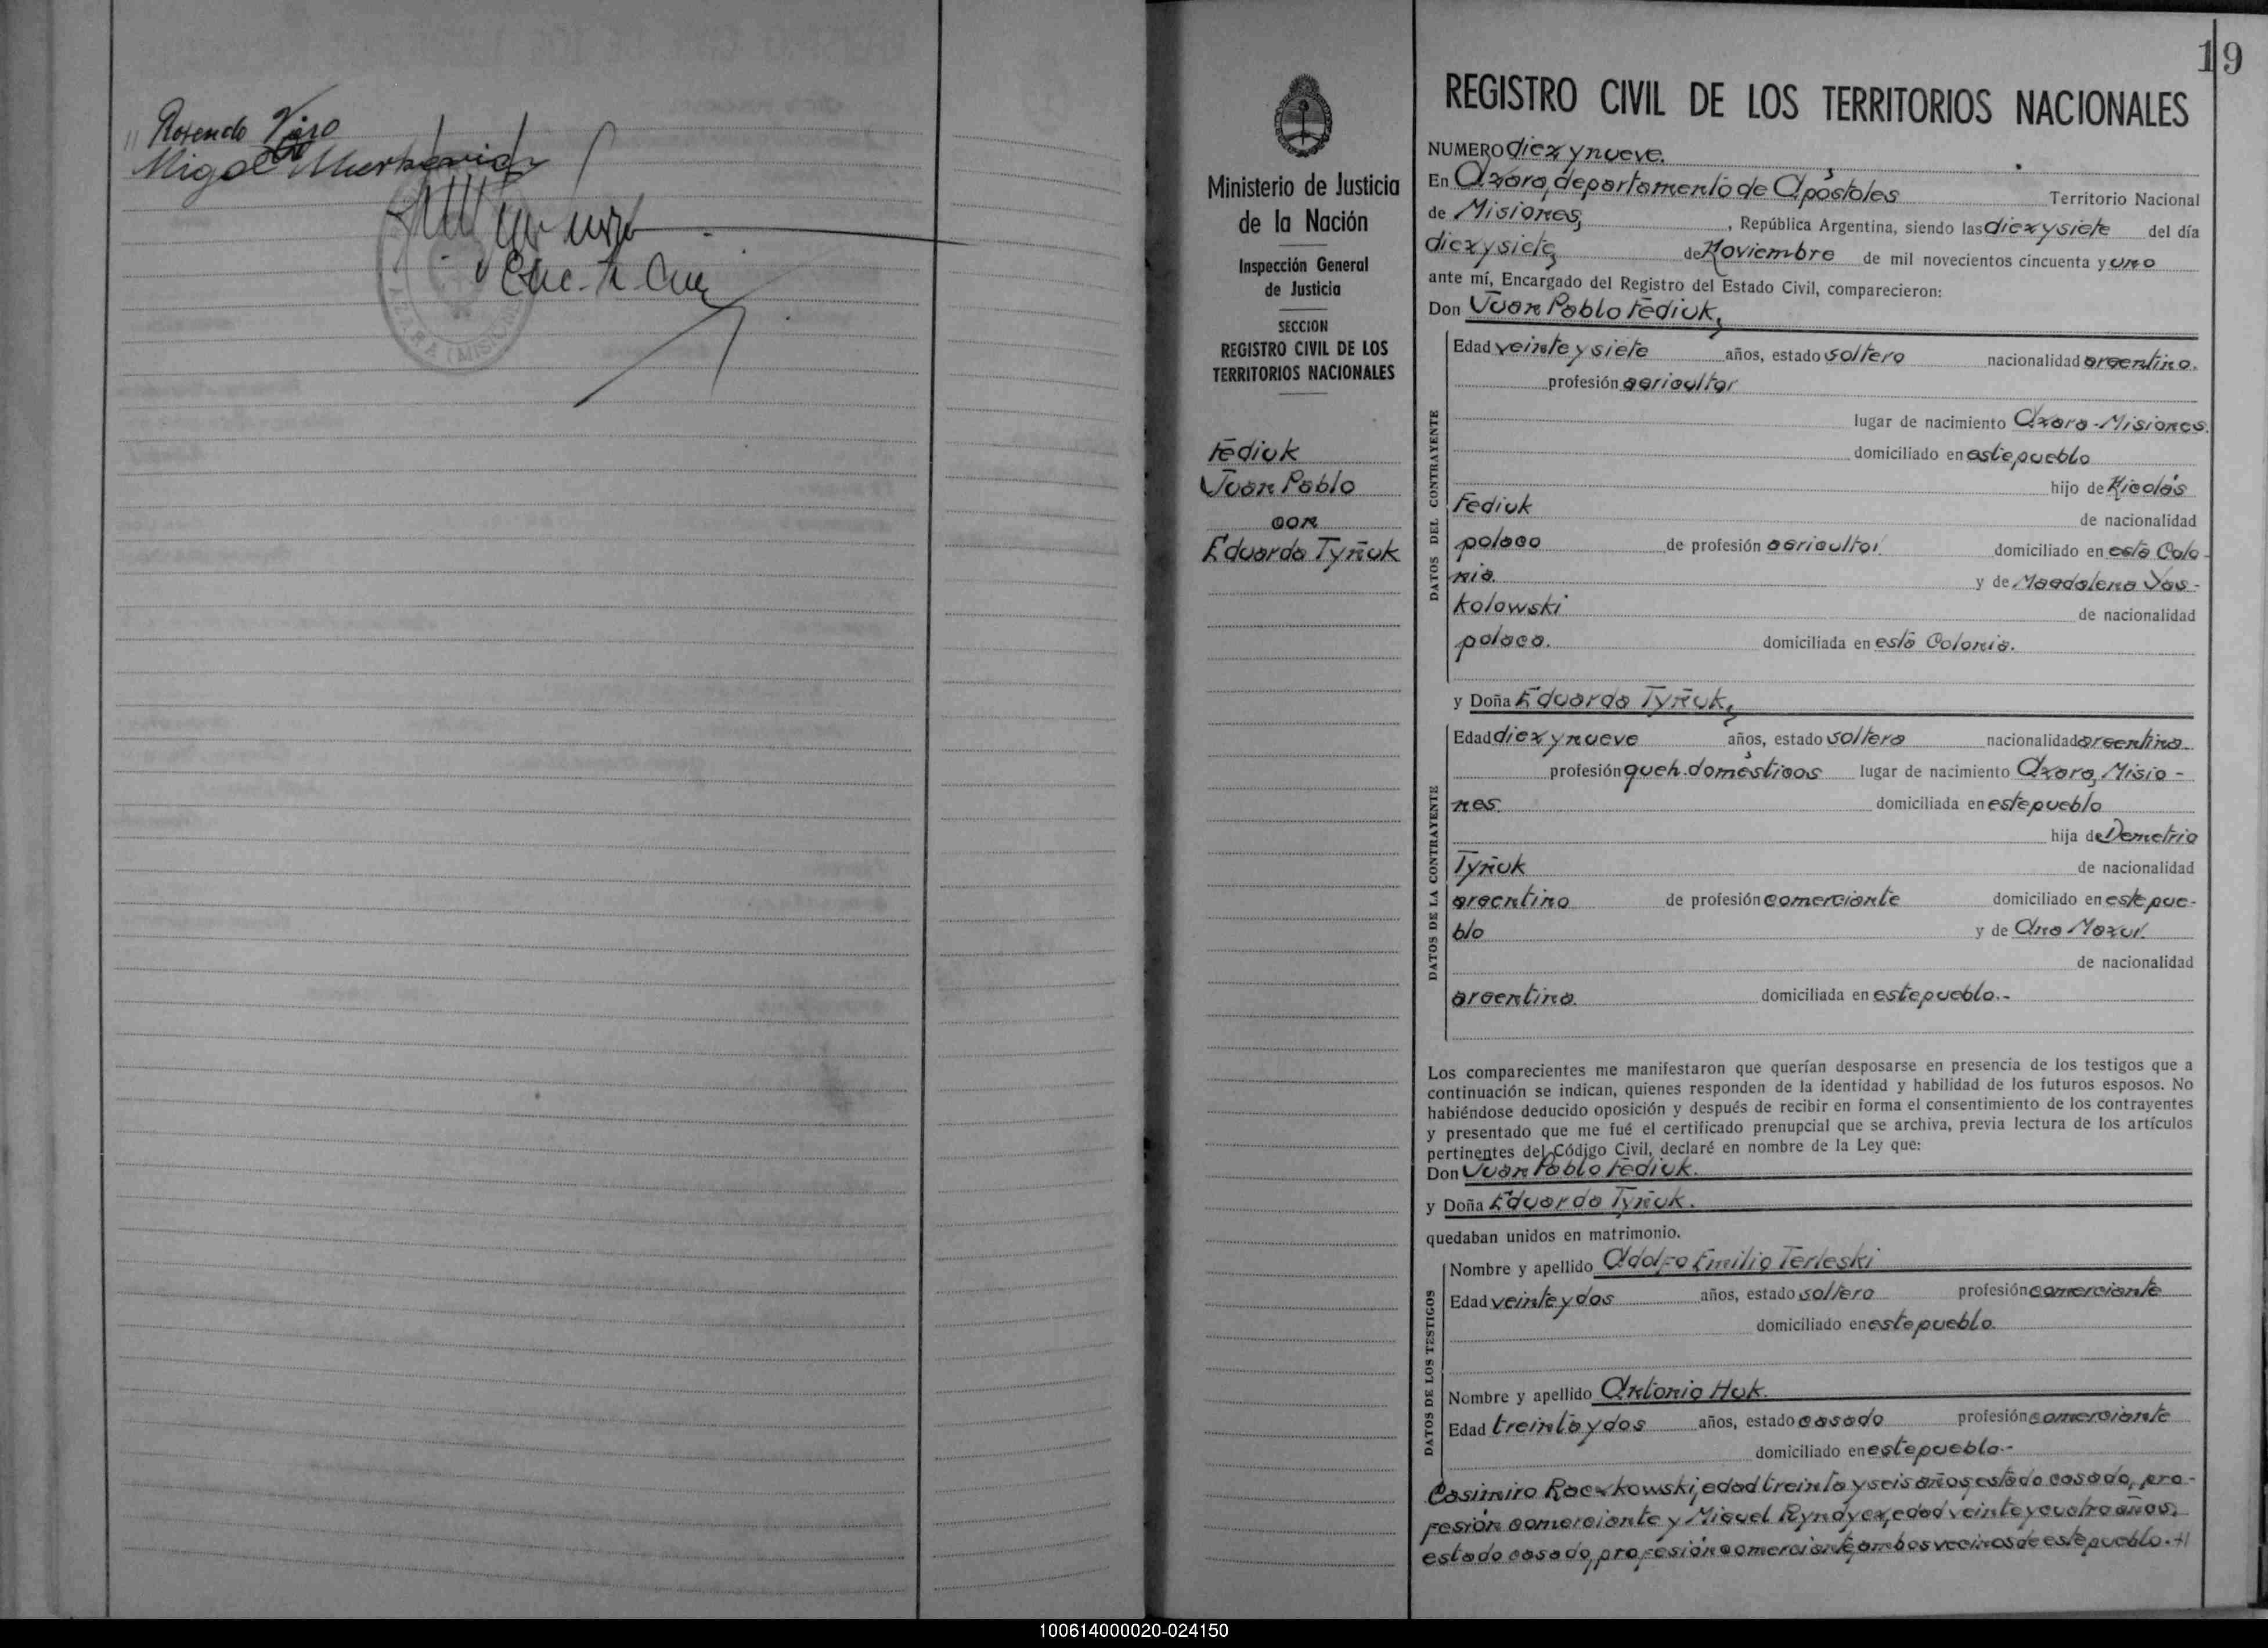 Rosendo
Migel
Enc. R. Civ
19
REGISTRO CIVIL DE LOS TERRITORIOS NACIONALES
NUMERO diez y nueve.
En Azara, departamento de Apóstoles Territorio Nacional
de Misiones, , República Argentina, siendo las diez y siete del día
diez y siete, de Noviembre de mil novecientos cincuenta y uno
ante mí, Encargado del Registro del Estado Civil, comparecieron:
Don Juan Pablo Fediuk,
Edad veinte y siete años, estado soltero nacionalidad argentino.
profesión agricultor
lugar de nacimiento Azara - Misiones.
domiciliado en este pueblo
hijo de Nicolás
Fediuk de nacionalidad
polaco de profesión agricultor domiciliado en esta Colo-
nia. y de Magdalena Jas-
kolowski de nacionalidad
polaca. domiciliada en esta Colonia.
y Doña Eduarda Tyñuk,
Edad diez y nueve años, estado soltera nacionalidad argentina
profesión queh. domésticos lugar de nacimiento Azara, Misio-
nes. domiciliada en este pueblo
hija de Demetrio
Tyñuk de nacionalidad
argentino de profesión comerciante domiciliado en este pue-
blo y de Ana Mazur.
de nacionalidad
argentina domiciliada en este pueblo.-
Los comparecientes me manifestaron que querían desposarse en presencia de los testigos que a
continuación se indican, quienes responden de la identidad y habilidad de los futuros esposos. No
habiéndose deducido oposición y después de recibir en forma el consentimiento de los contrayentes
y presentado que me fué el certificado prenupcial que se archiva, previa lectura de los artículos
pertinentes del Código Civil, declaré en nombre de la Ley que:
Don Juan Pablo Fediuk.
y Doña Eduarda Tyñuk.
quedaban unidos en matrimonio.
Nombre y apellido Adolfo Emilio Terleski
Edad veinte y dos años, estado soltero profesión comerciante
domiciliado en este pueblo.
Nombre y apellido Antonio Huk.
Edad treinta y dos años, estado casado profesión comerciante
domiciliado en este pueblo.-
Casimiro Raczkowski, edad treinta y seis años, estado casado, pro-
fesión comerciante y Miguel Ryndycz, edad veinte y cuatro años,
estado casado, profesión comerciante, ambos vecinos de este pueblo.-//
Ministerio de Justicia
de la Nación
Inspección General
de Justicia
SECCION
REGISTRO CIVIL DE LOS
TERRITORIOS NACIONALES
Fediuk
Juan Pablo
con
Eduarda Tyñuk
DATOS DEL CONTRAYENTE
DATOS DE LA CONTRAYENTE
DATOS DE LOS TESTIGOS
100614000020-024150